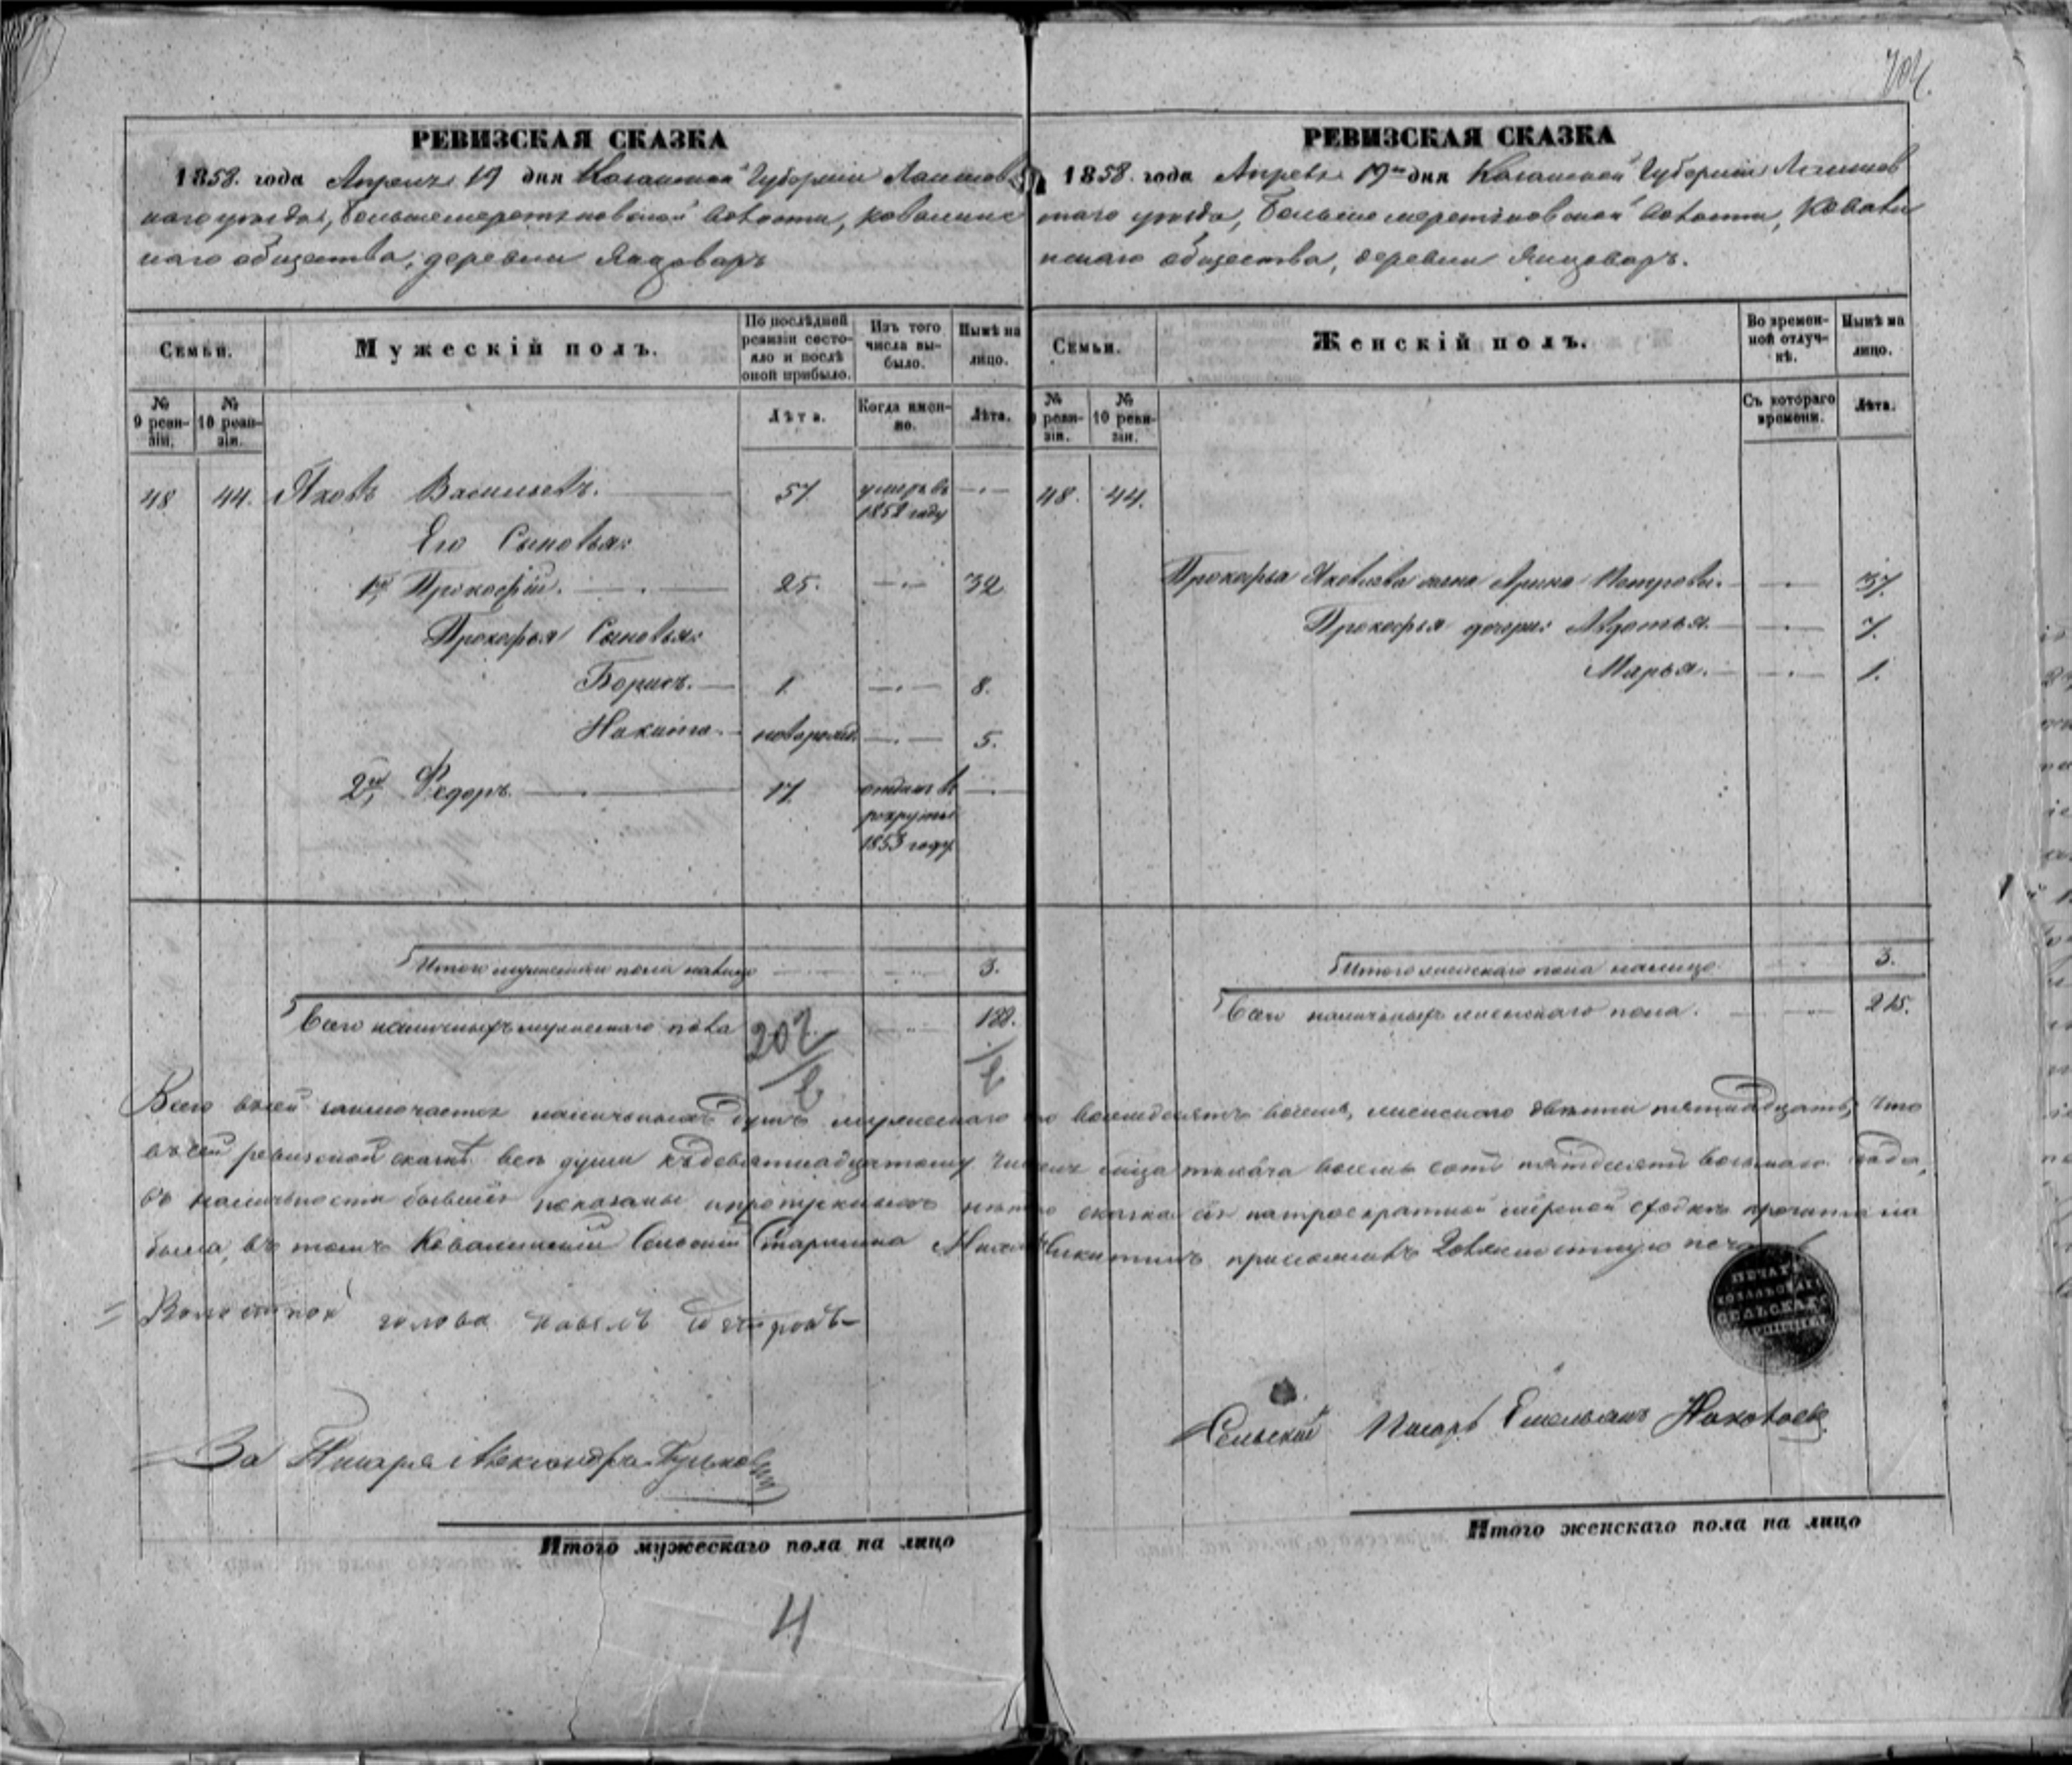 704.
РЕВИЗСКАЯ СКАЗКА
1858. года Апреля 19 дня Казанской Губернiи Лаишев
скаго уѣзда, Большемеретяковской волости, Ковалинс
каго общества, деревни Янцоваръ
Семьи.
Мужескiй полъ.
По послѣдней ревизiи состояло и послѣ оной прибыло.
Изъ того числа выбыло.
Нынѣ на лицо.
№ 9 ревизiи.
№ 10 ревизiи.
Лѣта.
Когда именно.
Лѣта.
48 44. Яковъ Васильевъ. 57 умеръ въ
1852 году
Его Сыновья:
1й Прокофiй. 25. 32.
Прокофья Сыновья:
Борисъ. 1. 8.
Никита. новорожд. 5.
2й Федоръ 17. отданъ въ
рекруты
1853 году
Итого мужескаго пола налицо 3.
Всего наличныхъ мужескаго пола 207. 188.
РЕВИЗСКАЯ СКАЗКА
1858. года Апреля 19го дня Казанской Губернiи Лаишев
скаго уѣзда, Большемеретяковской волости, Ковали
нскаго общества, деревни Янцоваръ.
Семьи.
Женскiй полъ.
Во временной отлучкѣ.
Нынѣ на лицо.
№ 9 ревизiи.
№ 10 ревизiи.
Съ котораго времени.
Лѣта.
48. 44.
Прокофья Яковлева жена Арина Петрова. 37.
Прокофья дочери: Авдотья. 7.
Марья. 1.
Итого женскаго пола налицо 3.
Всего наличныхъ женскаго пола. 215.
Всего въ сей заключается наличныхъ душъ мужескаго сто восемдесятъ восемь, женскаго двѣсти пятнадцать, что
въ сей ревизской сказкѣ всѣ души къ девятнадцатому числу тысяча восемь сотъ пятдесятъ восьмаго года,
въ наличности бывшiя показаны и пропускныхъ нѣтъ сказка сiя на троекратной мiрской сходкѣ прочитана
была, въ томъ Ковалинскiй Сельскiй Старшина Никитинъ приложилъ должностную печать
Волостной голова Павелъ
За Писаря Александръ
ПЕЧАТЬ
СЕЛЬСКАГО
СТАРШИНЫ
Сельскiй Писарь Емельянъ
Итого мужескаго пола на лицо
Итого женскаго пола на лицо
4